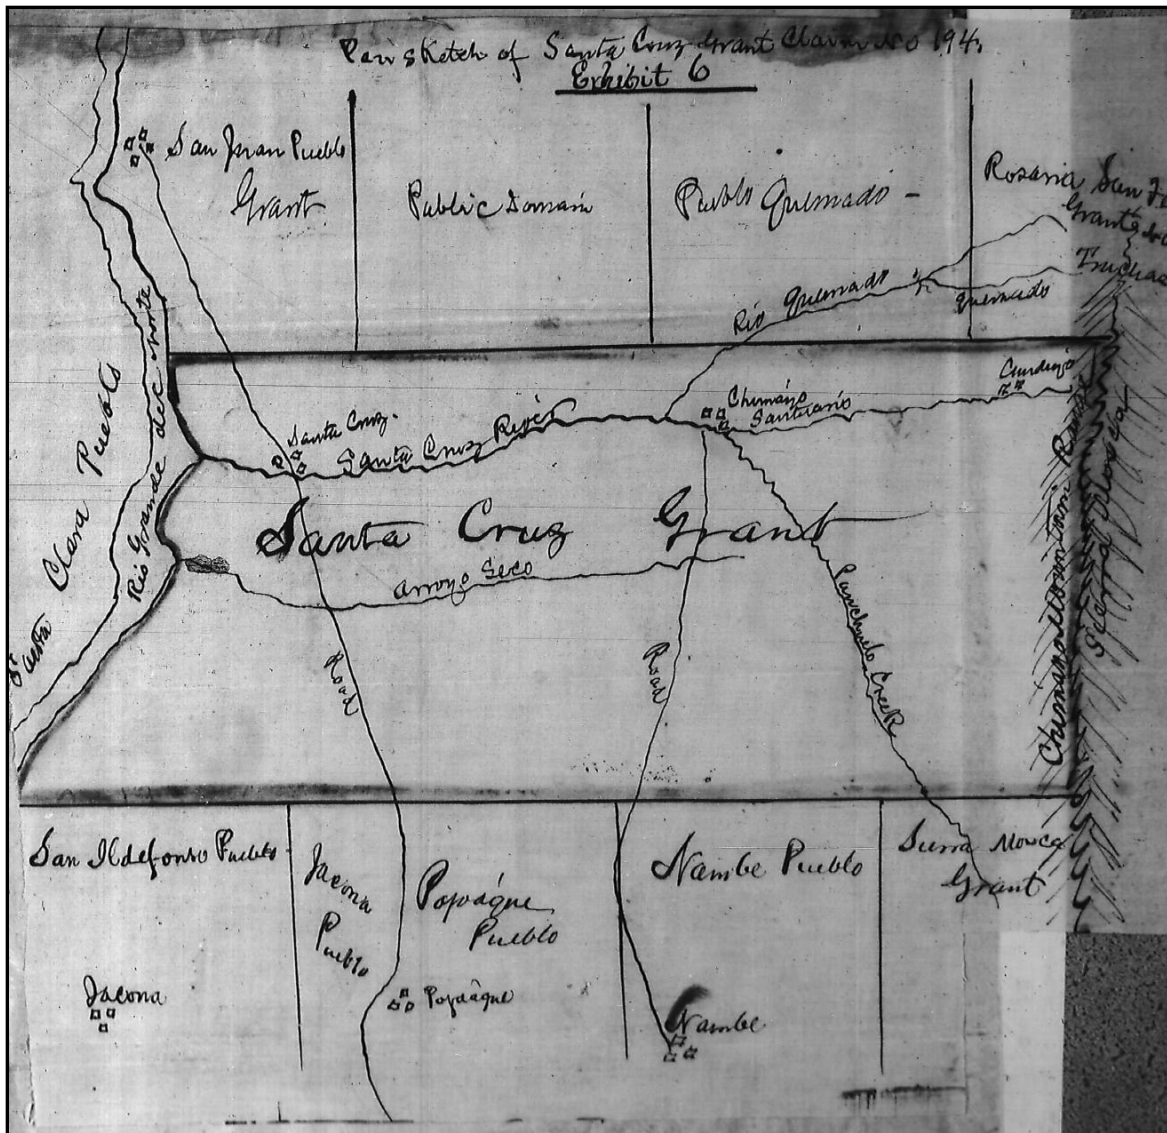 Pen sketch of Santa Cruz Grant Claim No 194.
Exhibit 6
San Juan Pueblo
Grant
Public Domain
Pueblo Quemado
Rosario San
Grant
Truchas
Rio Quemado
Quemado
Santa Clara Pueblo
Rio Grande del Norte
Santa Cruz
Santa Cruz River
Chimayo
Santuario
Cundiyo
Santa Cruz Grant
Arroyo Seco
Road
Road
Panchuelo Creek
Chimayo Mountain Range
Sierra Mosca
San Ildefonso Pueblo
Jacona
Pueblo
Pojoáque
Pueblo
Nambe Pueblo
Sierra Mosca
Grant
Jacona
Pojoáque
Nambe